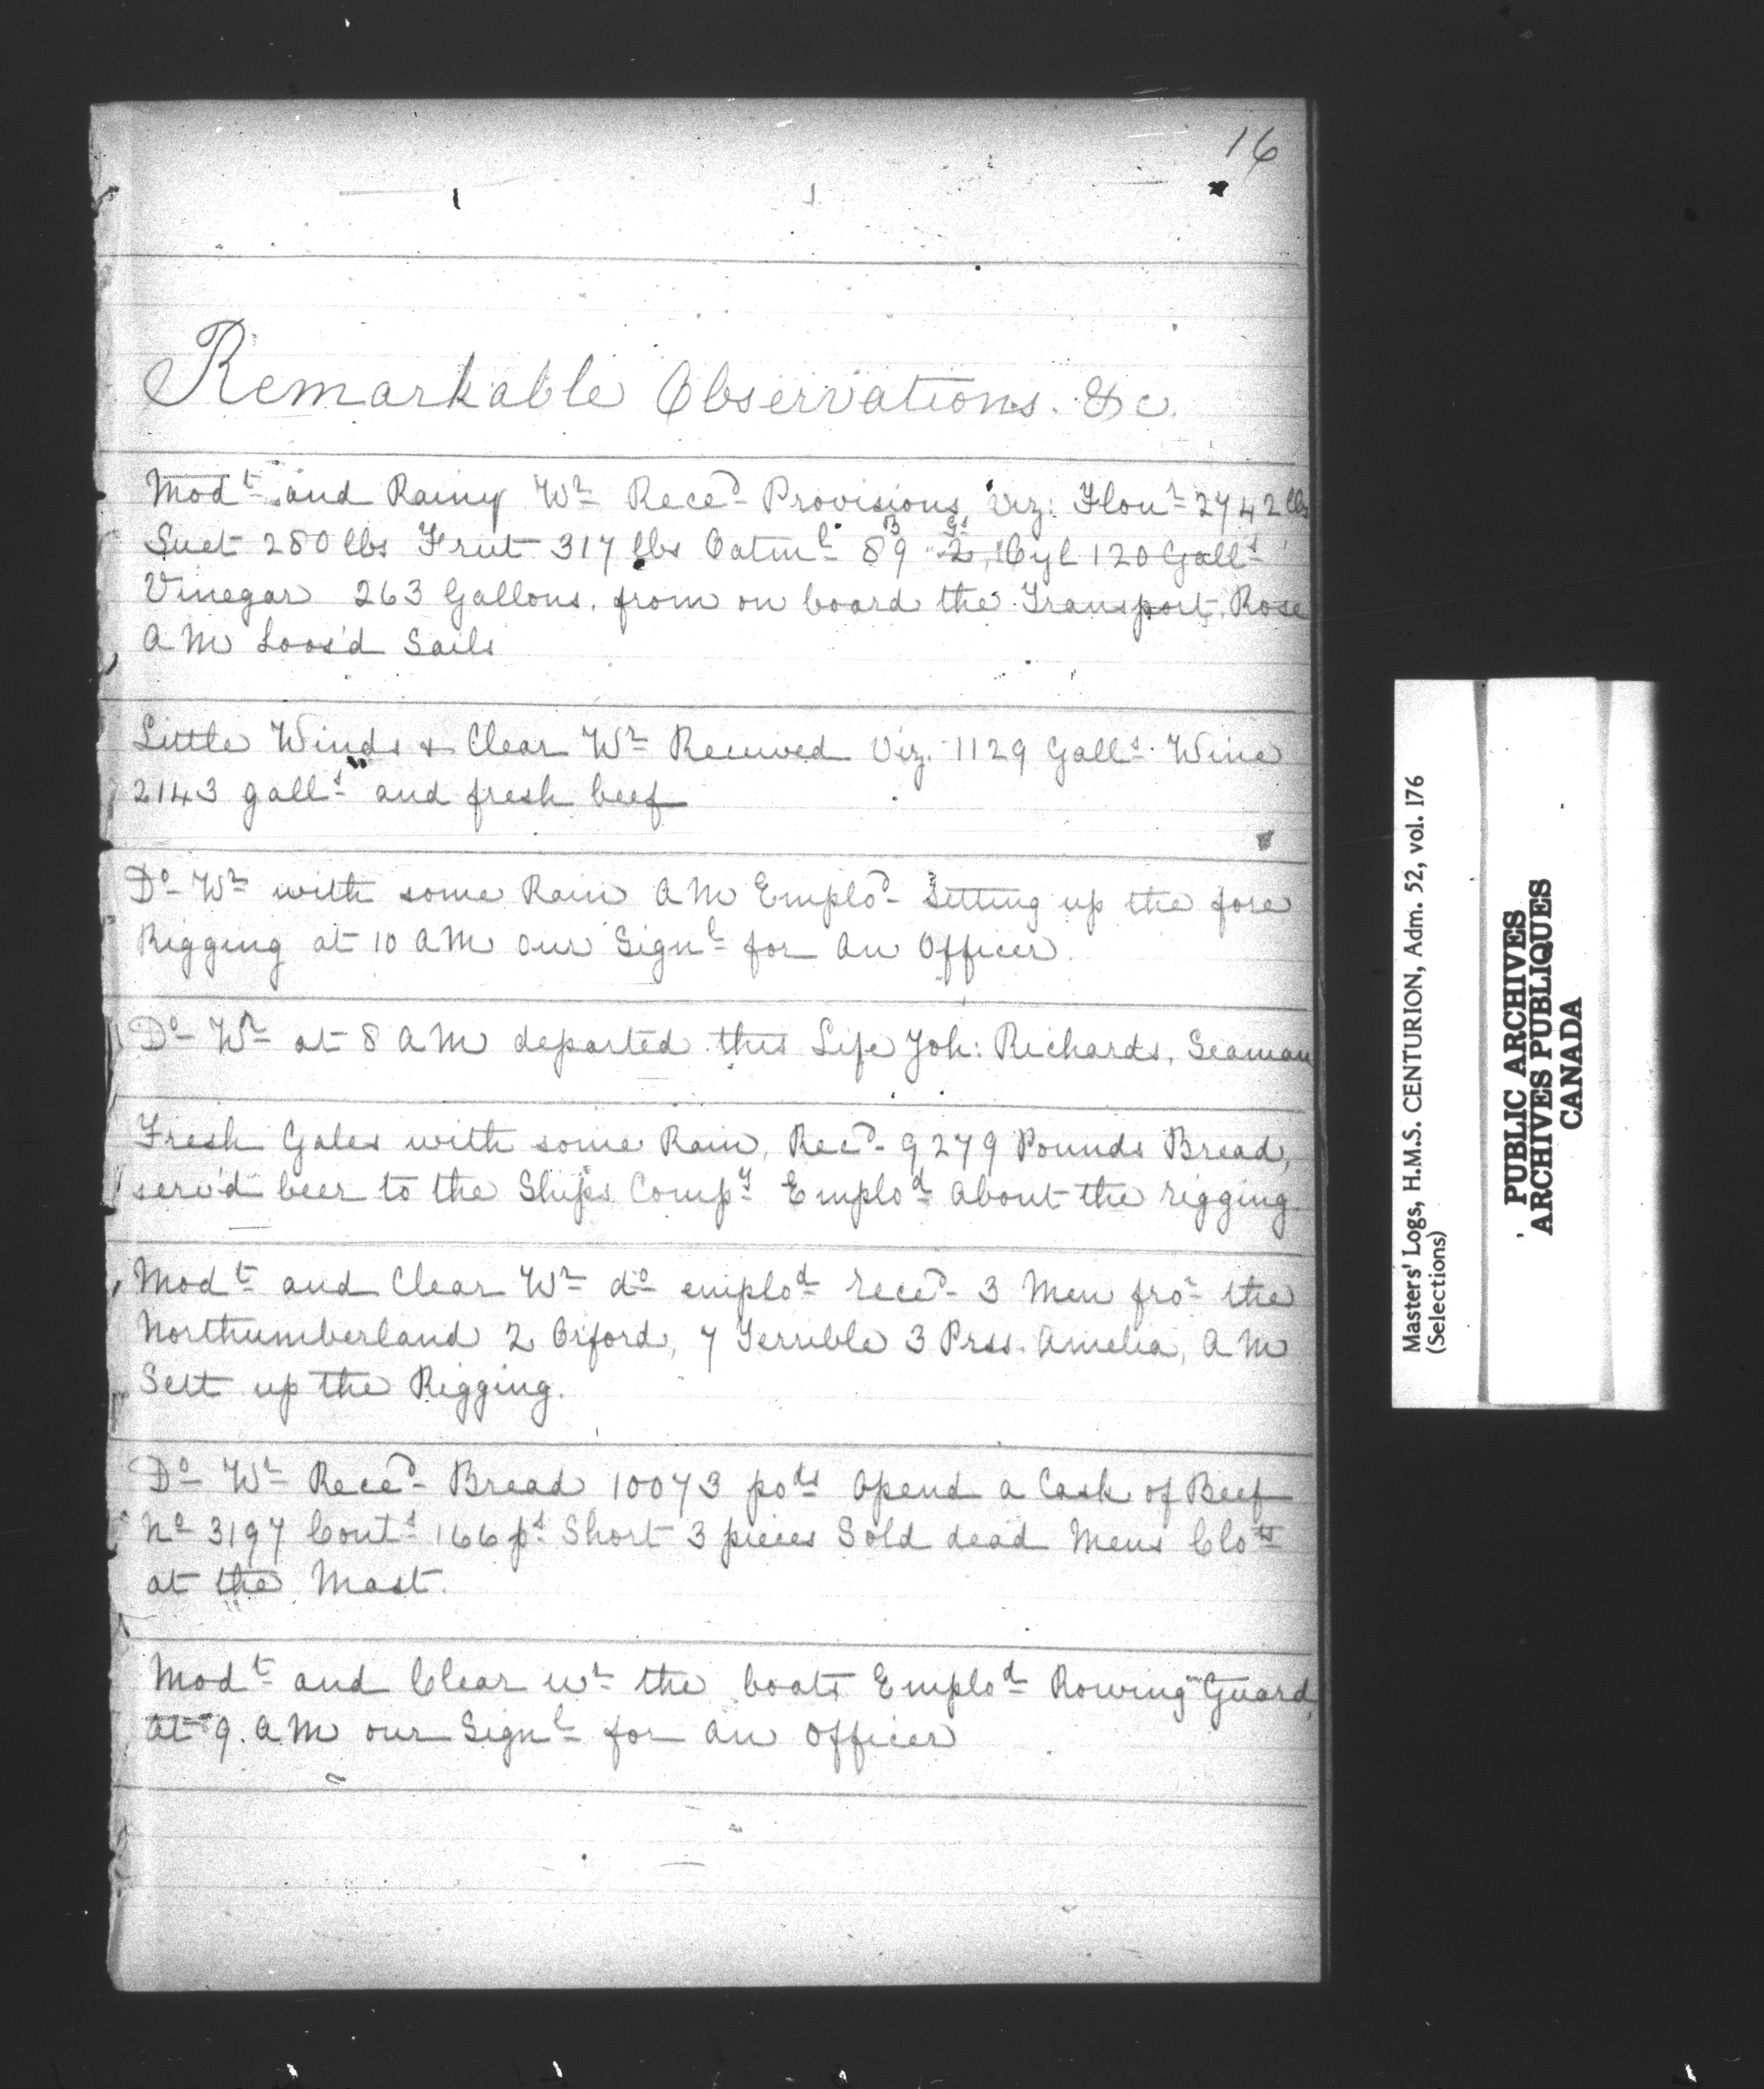 16
Remarkable Observations. &c.
Modt and Rainy Wr Reced Provisions Viz: Flour 2742 lbs
Suet 280 lbs Frut 317 lbs Oatml 89 B 2 Gs, Oyl 120 Galls
Vinegar 263 Gallons, from on board the Transport, Rose
AM Loos'd Sails
Little Winds & Clear Wr Received Viz. 1129 Galls Wine
2143 galls and fresh beef
Do Wr with some Rain AM Emplod Setting up the fore
Rigging at 10 AM our Signl for an Officer.
Do Wr at 8 AM departed this Life Joh: Richards, Seaman
Fresh Gales with some Rain, Recd 9279 Pounds Bread,
serv'd beer to the Ships Compy Emplod about the rigging.
Modt and Clear Wr do emplod reced 3 Men fro the
Northumberland 2 Orford, 7 Terrible 3 Prss. Amelia, AM
Sett up the Rigging.
Do Wr Reced Bread 10073 pods Opend a Cask of Beef
No 3197 Conts 166 ps Short 3 pieces Sold dead Mens Clots
at the Mast.
Modt and Clear wr the boats Emplod Rowing Guard,
at 9. AM our Signl for an Officer
Masters' Logs, H.M.S. CENTURION, Adm. 52, vol. 176
(Selections)
PUBLIC ARCHIVES
ARCHIVES PUBLIQUES
CANADA